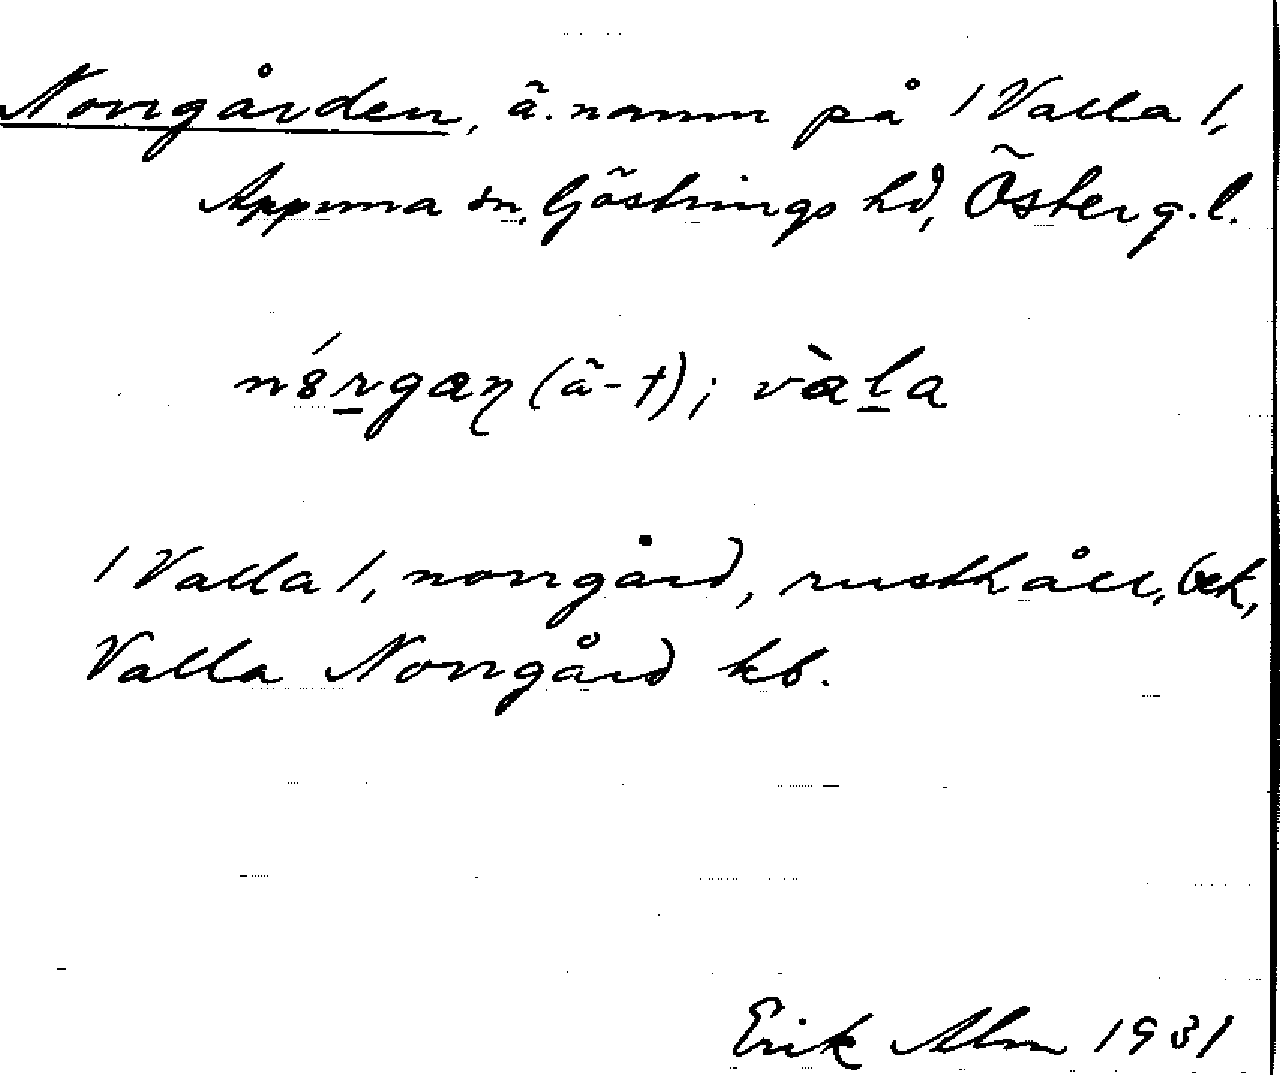 Norrgården, ä. namn på 1 Valla 1,
Appuna sn, Göstrings hd, Österg.l.
n8́rgaŋ (ä-t); vàla
1 Valla 1, norrgård, rusthåll, bet,
Valla Norrgård kb.
Erik Alm 1931